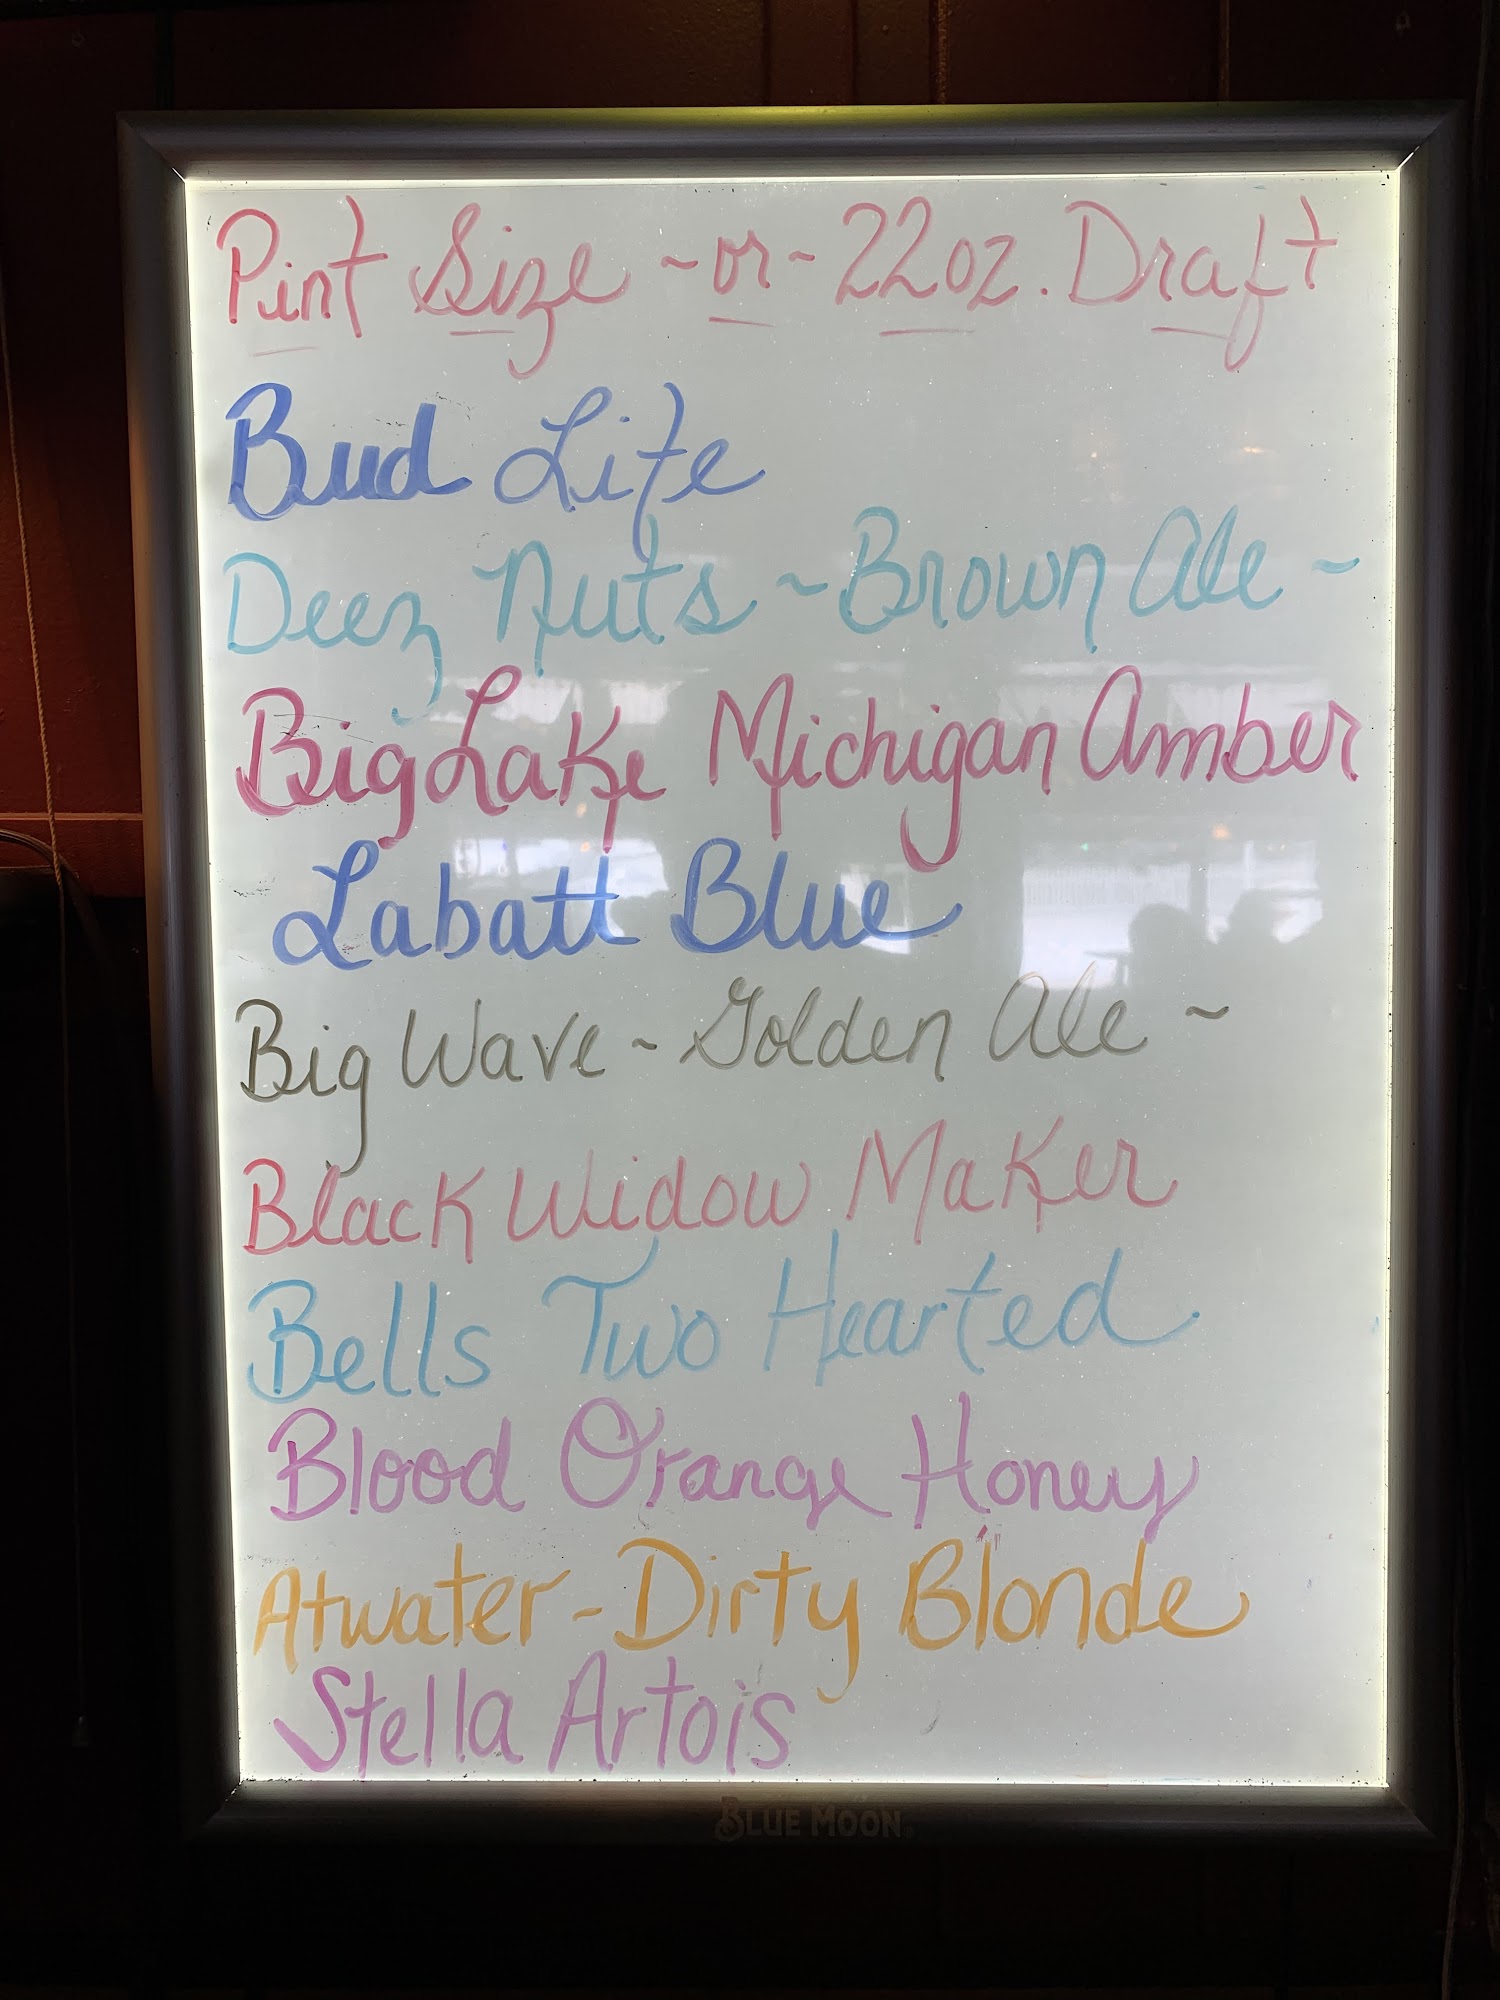 Pint Size ~or~ 22oz. Draft
Bud Lite
Deez Nuts ~ Brown Ale ~
Big Lake Michigan Amber
Labatt Blue
Big Wave ~ Golden Ale ~
Black Widow Maker
Bells Two Hearted
Blood Orange Honey
Atwater - Dirty Blonde
Stella Artois
BLUE MOON